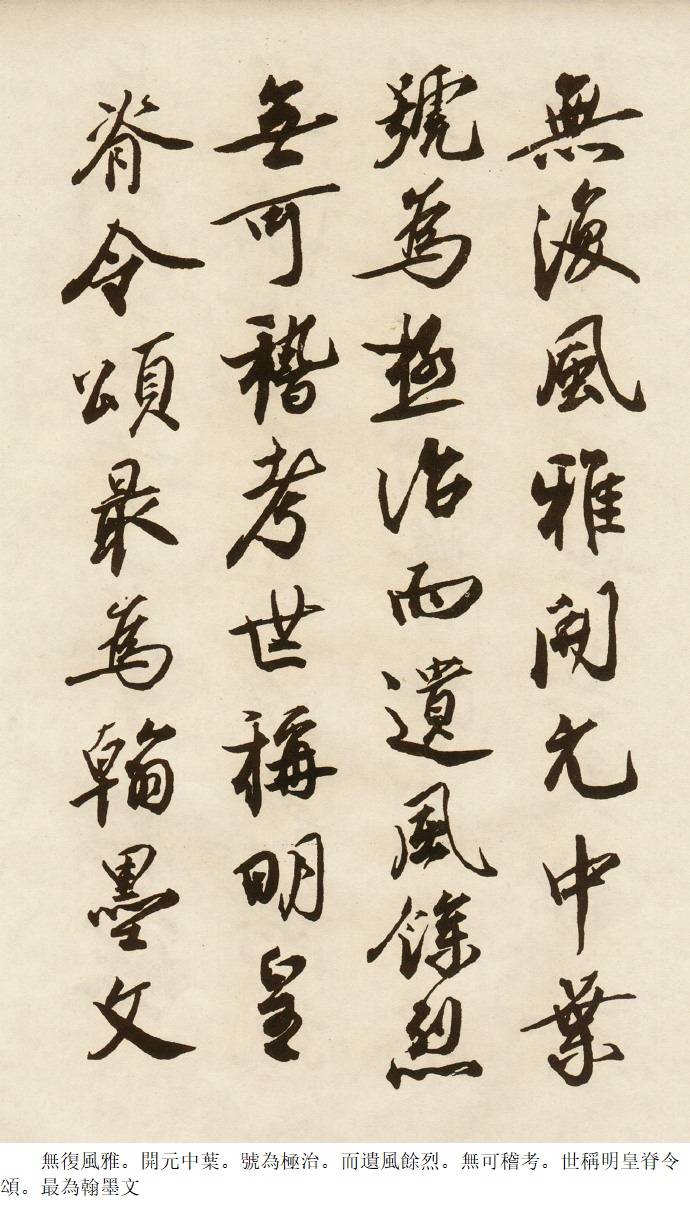 無復風雅開元中葉
號為極治而遺風餘烈
無可稽考世稱明皇
脊令頌最為翰墨文
無復風雅。開元中葉。號為極治。而遺風餘烈。無可稽考。世稱明皇脊令
頌。最為翰墨文